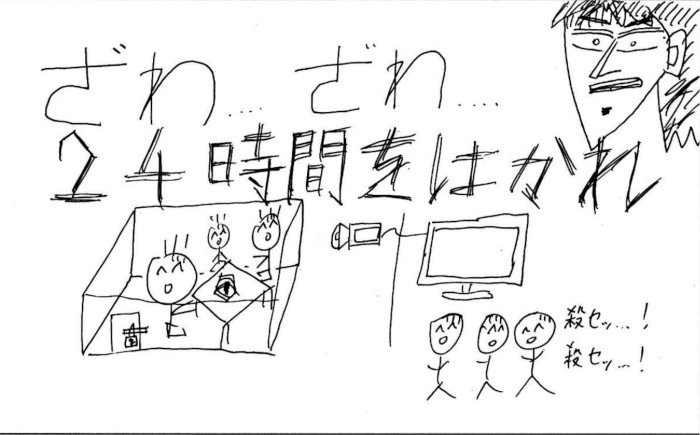 ざわ…. ざわ….
24時間をはかれ
殺セッ…!
殺セッ…!